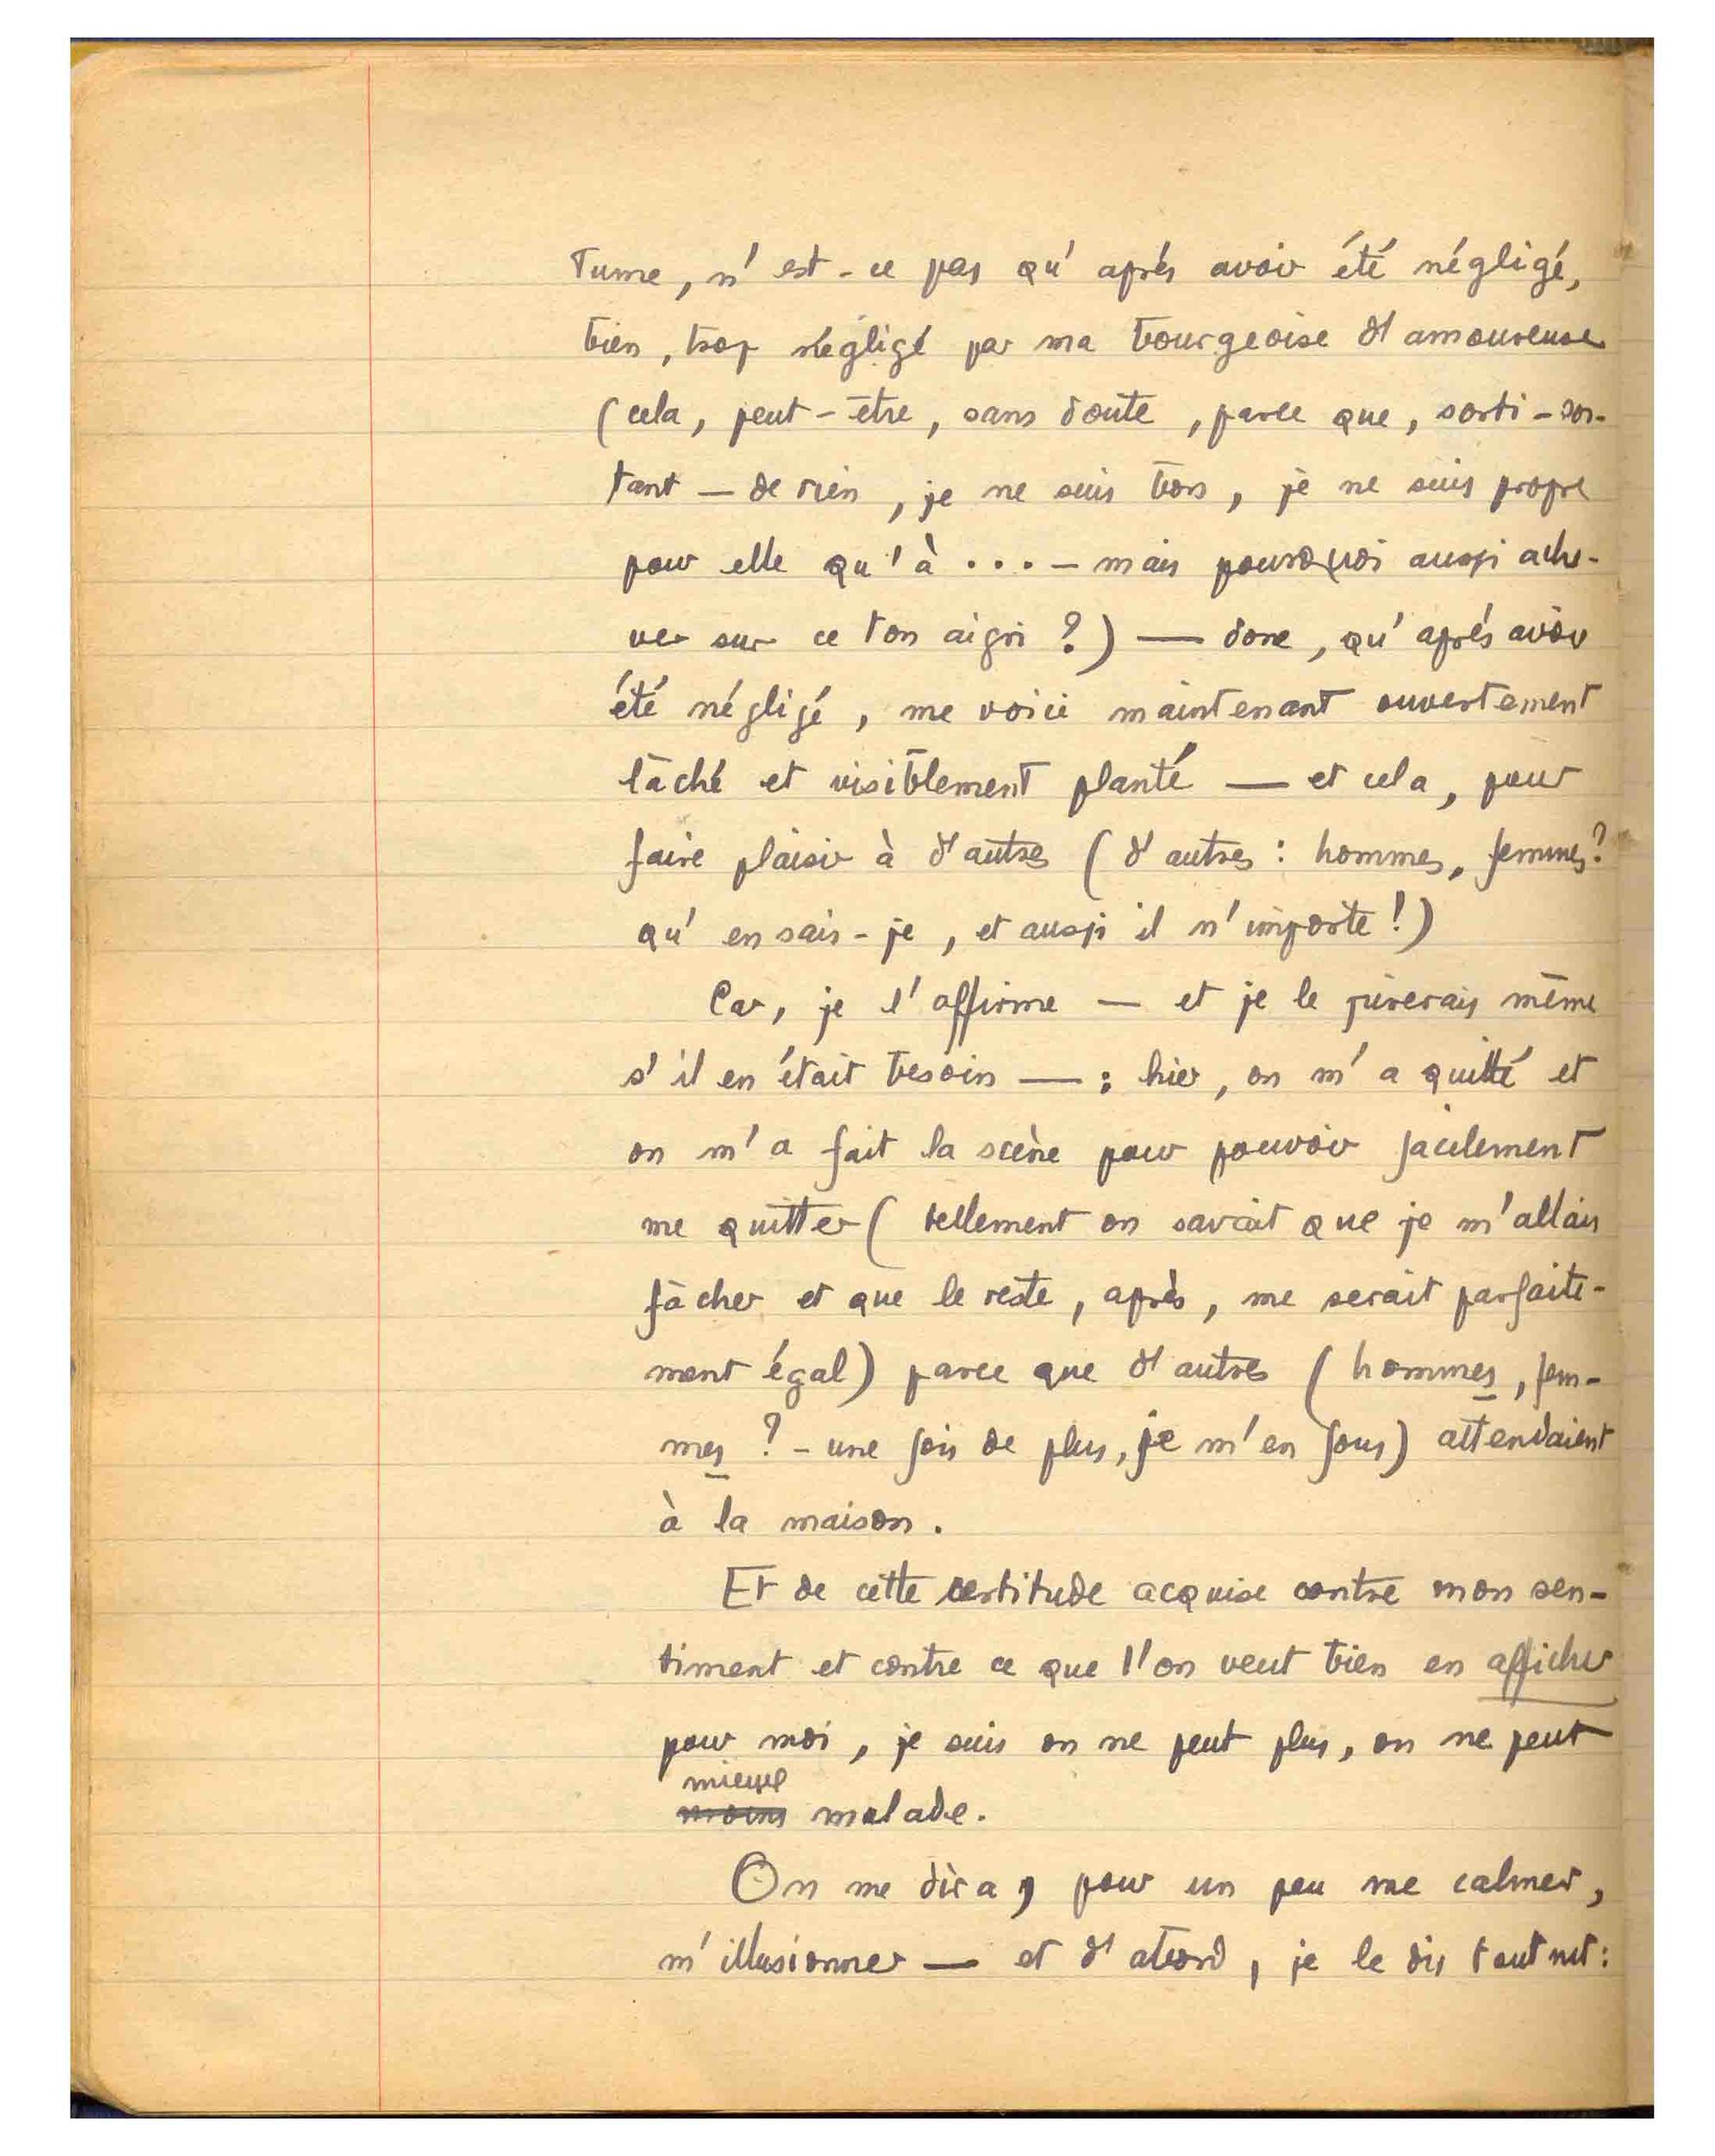 tume, n'est-ce pas qu'après avoir été négligé,
bien, trop négligé par ma bourgeoise d'amoureuse
(cela, peut-être, sans doute, parce que, sorti - sor-
tant — de rien, je ne suis bon, je ne suis propre
pour elle qu'à ... - mais pourquoi aussi ache-
ver sur ce ton aigri ?) — donc, qu'après avoir
été négligé, me voici maintenant ouvertement
lâché et visiblement planté — et cela, pour
faire plaisir à d'autres (d'autres : hommes, femmes ?
qu'en sais-je, et aussi il n'importe !)
Car, je l'affirme — et je le jurerais même
s'il en était besoin — : hier, on m'a quitté et
on m'a fait la scène pour pouvoir facilement
me quitter (tellement on savait que je m'allais
fâcher et que le reste, après, me serait parfaite-
ment égal) parce que d'autres (hommes, fem-
mes ? - une fois de plus, je m'en fous) attendaient
à la maison.
Et de cette certitude acquise contre mon sen-
timent et contre ce que l'on veut bien en afficher
pour moi, je suis on ne peut plus, on ne peut
mieux
moins malade.
On me dira, pour un peu me calmer,
m'illusionner — et d'abord, je le dis tout net :